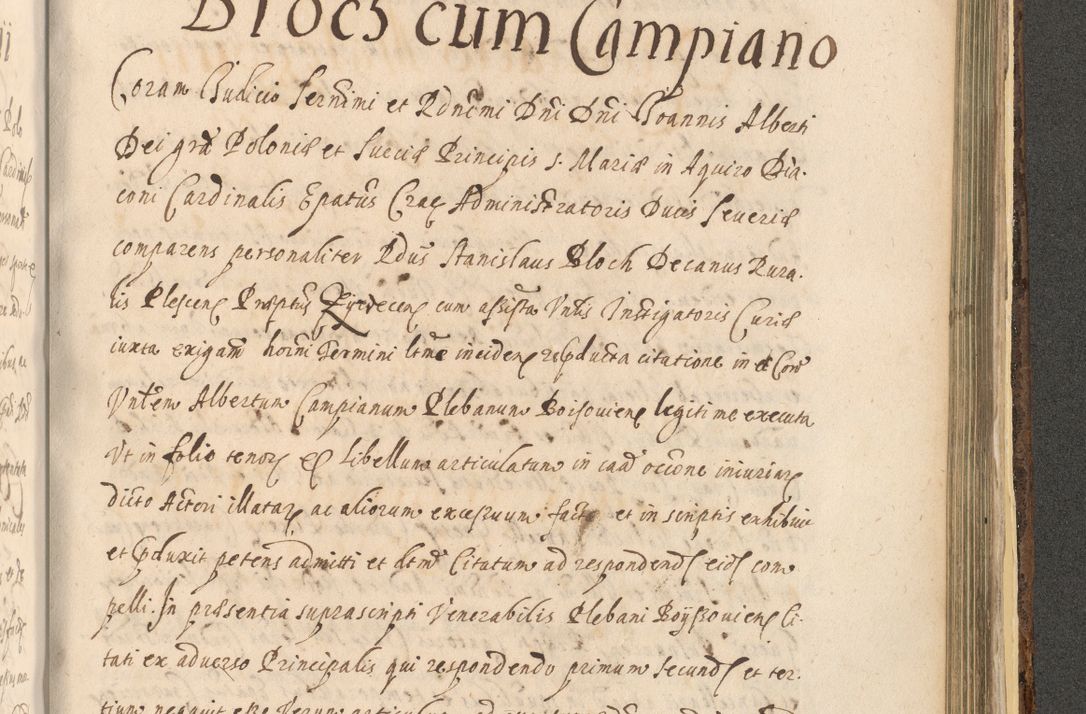 Bloch cum Campiano
Coram Iudicio Sernimi et Rdncmi Dni Dni Ioannis Alberti
Dei gra Poloniæ et Sueciæ Principis S. Mariæ in Aquiro Dia-
coni Cardinalis Epatus Crac Administratoris Ducis Severiæ
comparens personaliter Rdus Stanislaus Bloch Decanus Rura-
lis Plescen Præptus cum assista Instigatoris Curiæ
iuxta exigam horni Termini ltme inciden repducta citatione in et Con
Albertum Campianum Plebanum Boisouien legitime executa
Ut in folio tenor libellum articulatum in cad occone iniuriar
dicto Actori illatar ac aliorum excessuum facto et in scriptis exhibuit
et pduxit petens admitti et Citatum ad respondend eid com
pelli. In præsentia suprascripti Venerabilis Plebani Boyssouien Ci-
tati ex adverso Principalis qui respondendo primum secund et ter-
tium negavit esse Verum